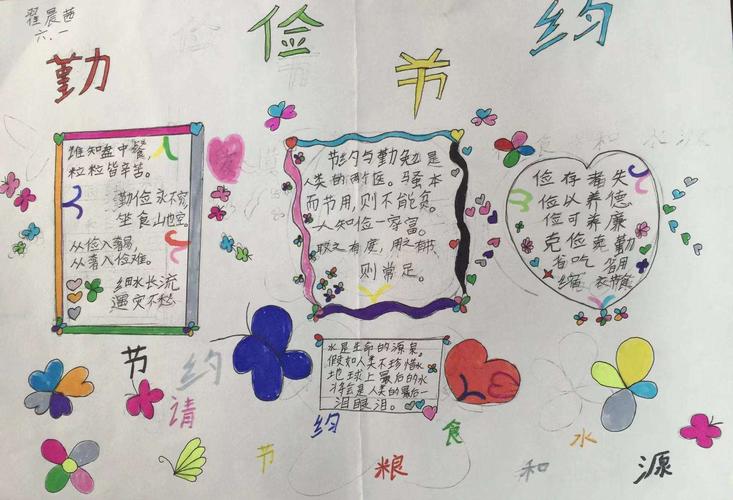 翟晨茜
六.一
勤俭节约
谁知盘中餐,
粒粒皆辛苦。
勤俭永不穷
坐食山也空。
从俭入奢易,
从奢入俭难。
细水长流
遇灾不愁
节约与勤勉是
人类的两个医。强本
而节用,则不能贫。
人知俭一家富。
取之有度,用之有节,
则常足。
俭存奢失
俭以养德
俭可养廉
克俭克勤
省吃省用
缩衣节食
水是生命的源泉。
假如人类不珍惜水
地球上最后的水
将会是人类的最后一
泪眼泪。
节约
请节约粮食和水源